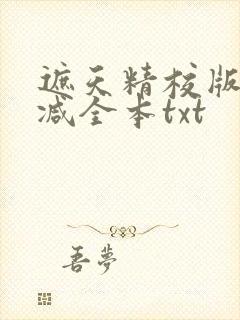 遮天精校版
减全本txt
吾夢